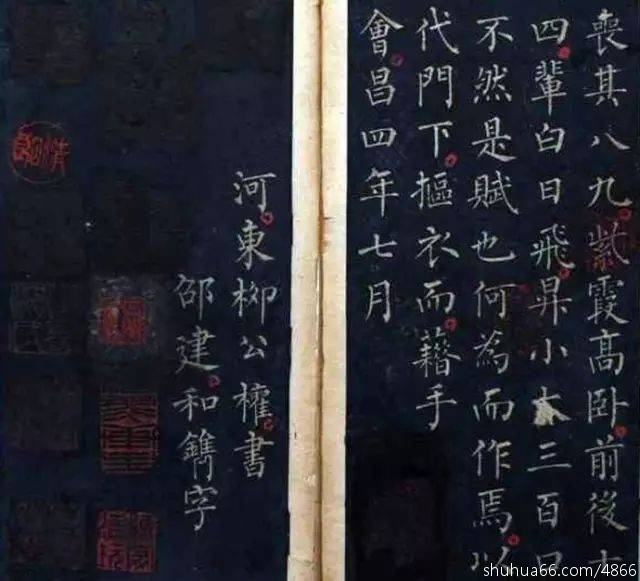 喪其八九紫霞高卧前後十
四輩白日飛昇小大三百口
不然是賦也何為而作焉以
代門下摳衣而藉手
會昌四年七月
河東柳公權書
邵建和鐫字
shuhua66.com/4866